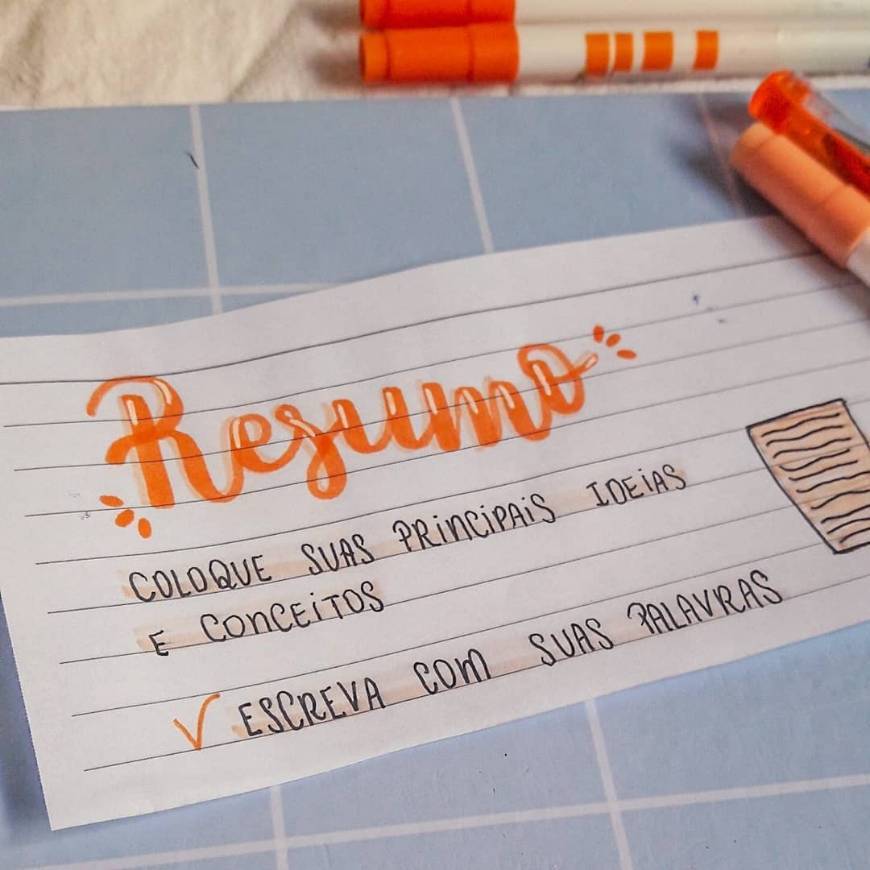 Resumo
COLOQUE SUAS PRINCIPAIS IDEIAS
E CONCEITOS
ESCREVA COM SUAS PALAVRAS